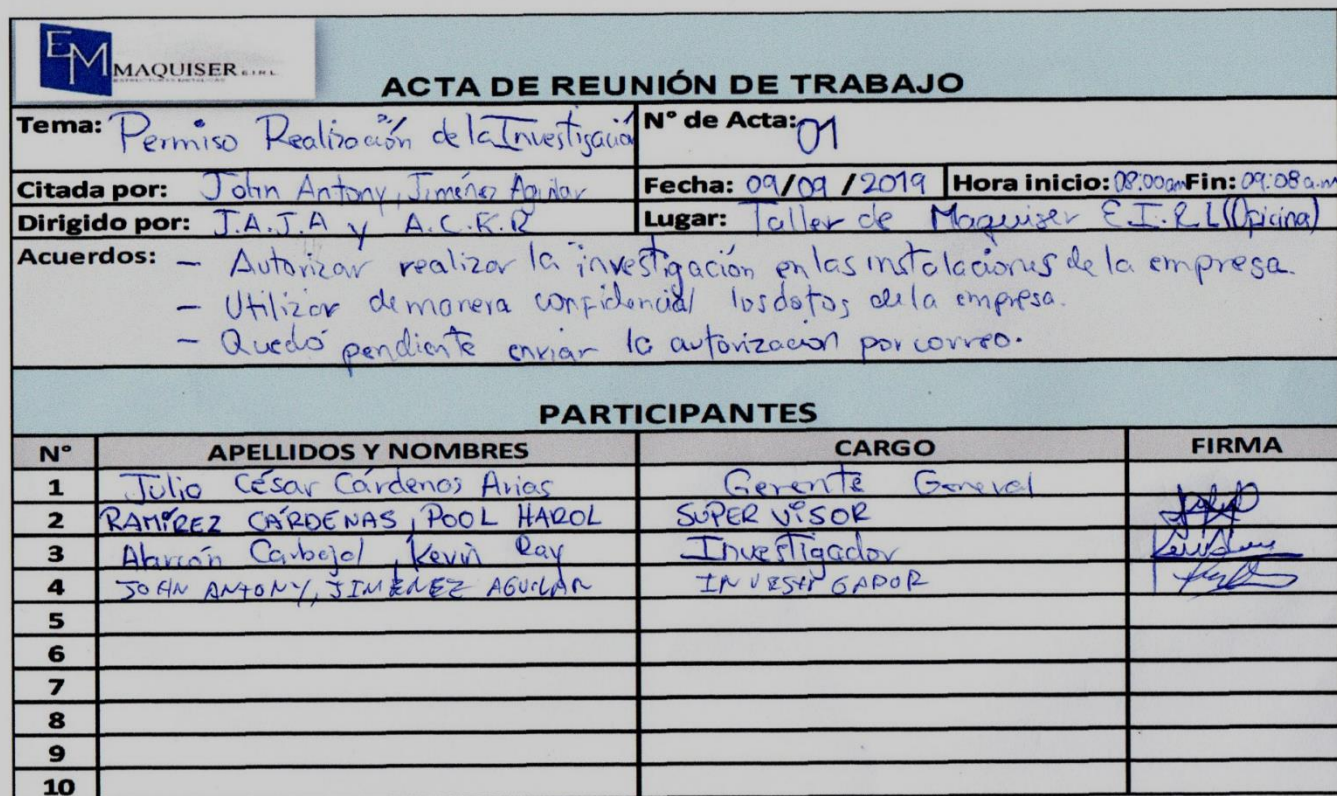 EM MAQUISER E.I.R.L.
ESTRUCTURAS METALICAS
ACTA DE REUNIÓN DE TRABAJO
Tema: Permiso Realización de la Investigación N° de Acta: 01
Citada por: John Antony, Jiménez Aguilar Fecha: 09/09/2019 Hora inicio: 08:00am Fin: 09:08 a.m
Dirigido por: J.A.J.A y A.C.K.R Lugar: Taller de Maquiser E.I.R.L (Oficina)
Acuerdos: - Autorizar realizar la investigación en las instalaciones de la empresa.
- Utilizar de manera confidencial los datos de la empresa.
- Quedó pendiente enviar la autorización por correo.
PARTICIPANTES
N° APELLIDOS Y NOMBRES CARGO FIRMA
1 Julio César Cárdenas Arias Gerente General
2 RAMÍREZ CÁRDENAS, POOL HAROL SUPERVISOR
3 Alarcón Carbajal, Kevin Ray Investigador
4 JOHN ANTONY, JIMÉNEZ AGUILAR INVESTIGADOR
5
6
7
8
9
10